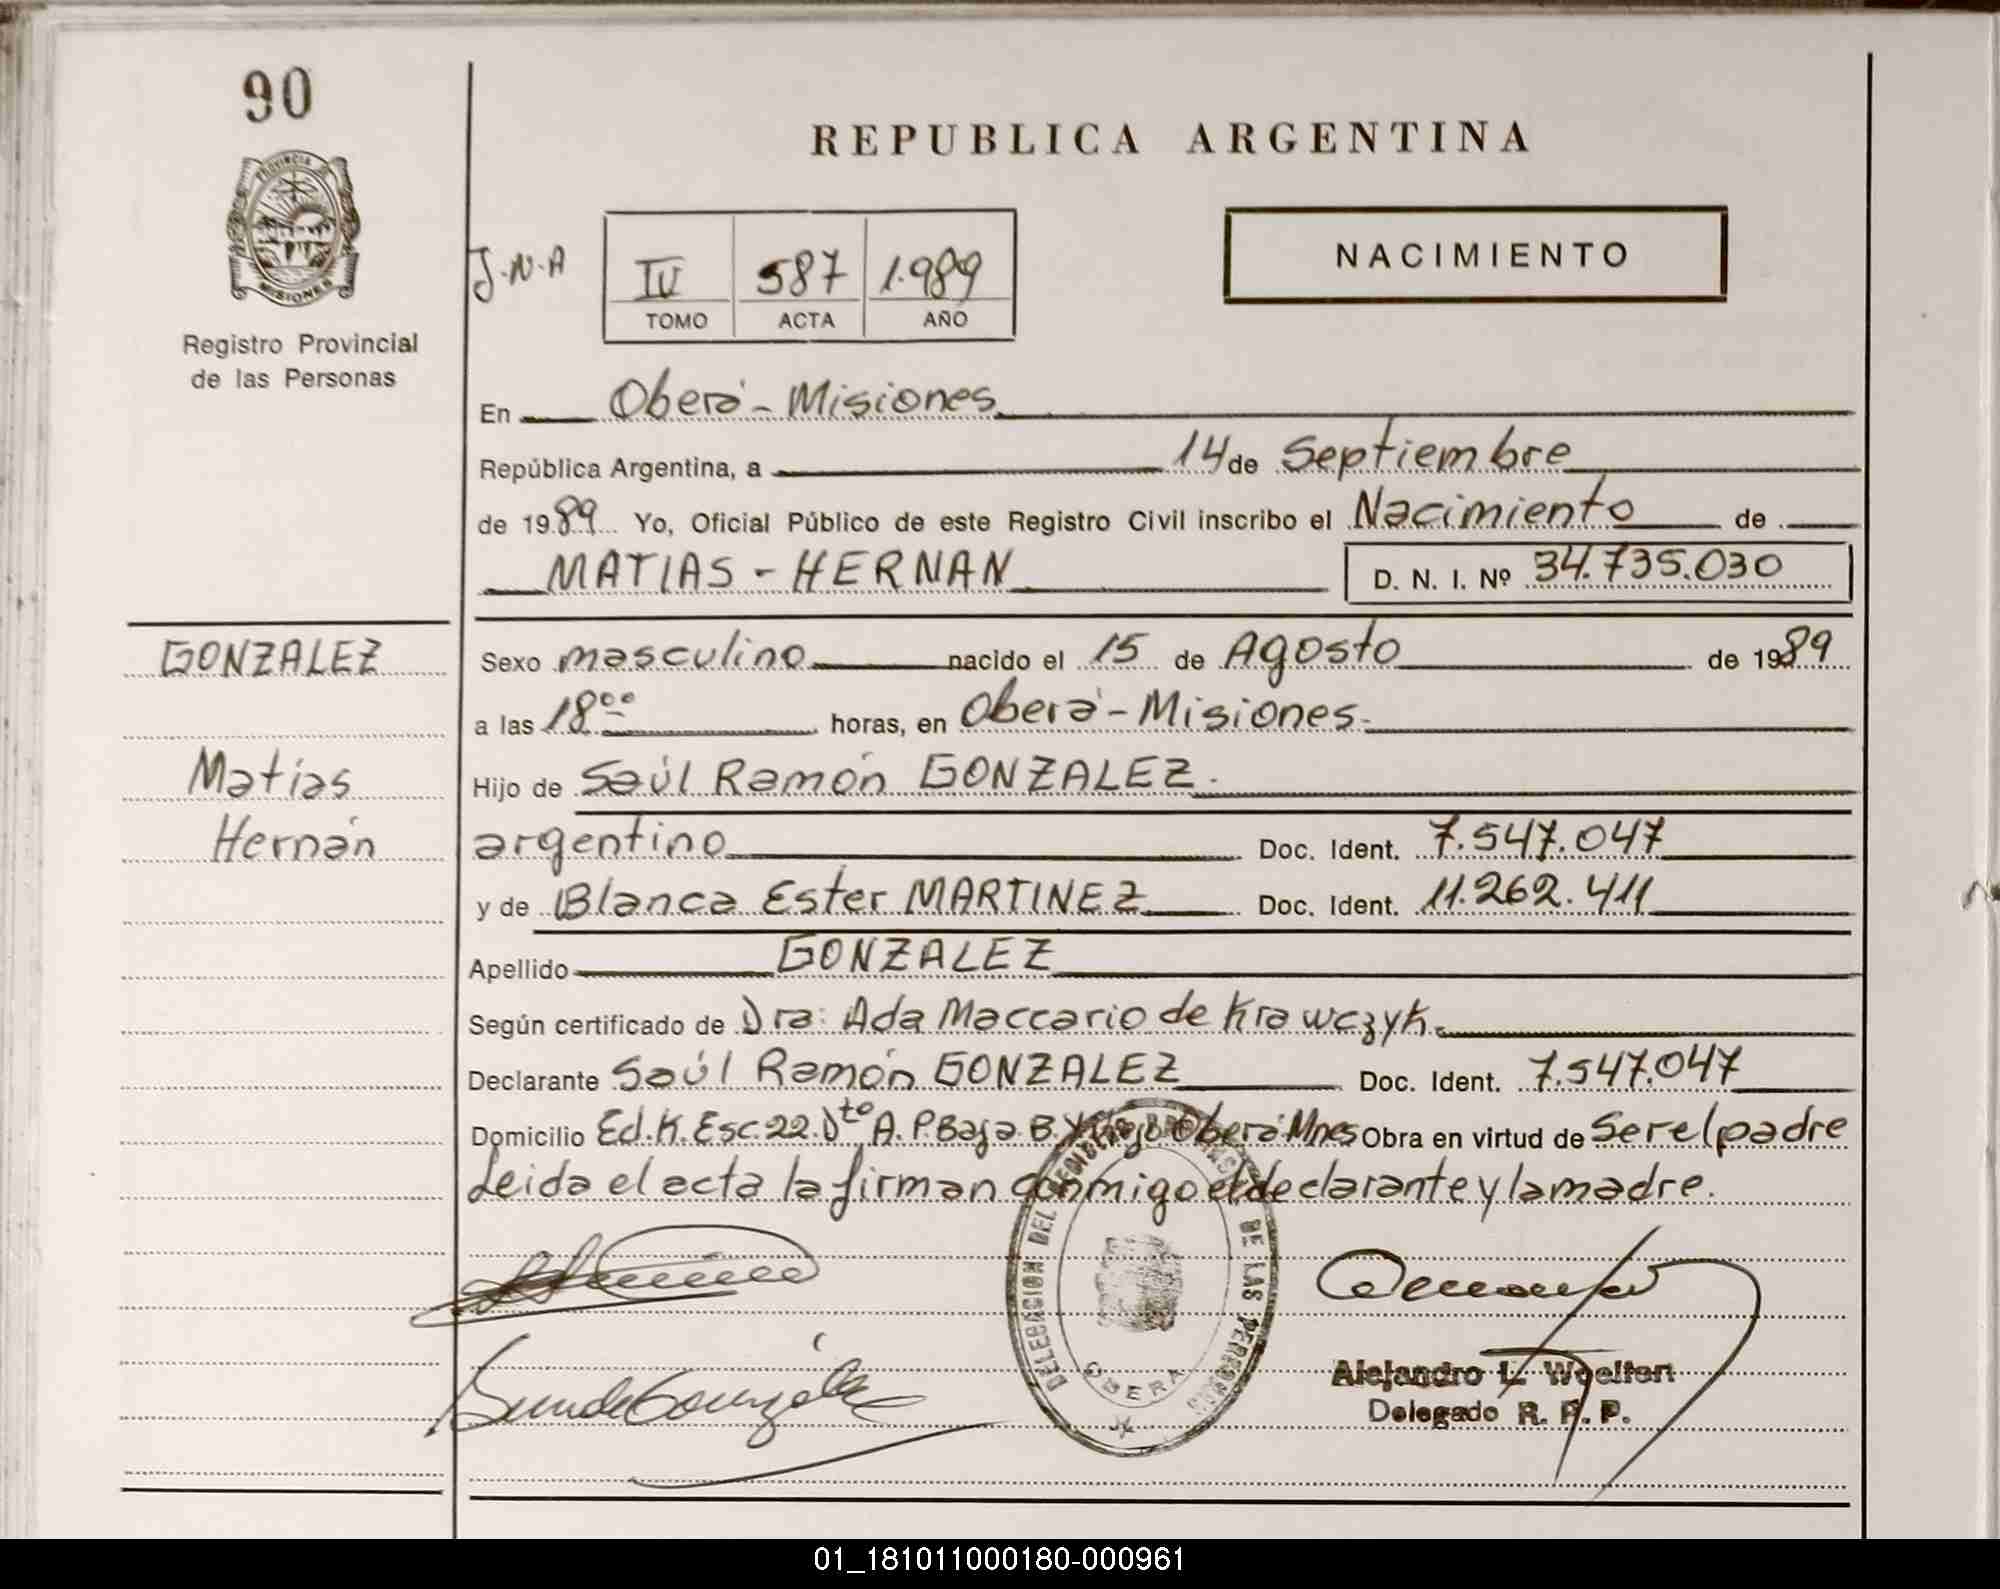 90
PROVINCIA DE
MISIONES
Registro Provincial
de las Personas
GONZALEZ
Matías
Hernán
REPUBLICA ARGENTINA
NACIMIENTO
J-N-A
IV 587 1.989
TOMO ACTA AÑO
En Oberá - Misiones
República Argentina, a 14 de Septiembre
de 1989 Yo, Oficial Público de este Registro Civil inscribo el Nacimiento de
MATIAS - HERNAN D. N. I. Nº 34.735.030
Sexo masculino nacido el 15 de Agosto de 1989
a las 18°° horas, en Oberá - Misiones.
Hijo de Saúl Ramón GONZALEZ.
argentino Doc. Ident. 7.547.047
y de Blanca Ester MARTINEZ Doc. Ident. 11.262.411
Apellido GONZALEZ
Según certificado de Dra: Ada Maccario de Krawczyk.
Declarante Saúl Ramón GONZALEZ Doc. Ident. 7.547.047
Domicilio Ed. K. Esc. 22. Dto A. P Baja B. Oberá Mnes Obra en virtud de Ser el padre
Leida el acta la firman conmigo el declarante y la madre.
DELEGACION DEL REGISTRO DE LAS PERSONAS
OBERA
Alejandro L. Woelfert
Delegado R. P. P.
01_181011000180-000961